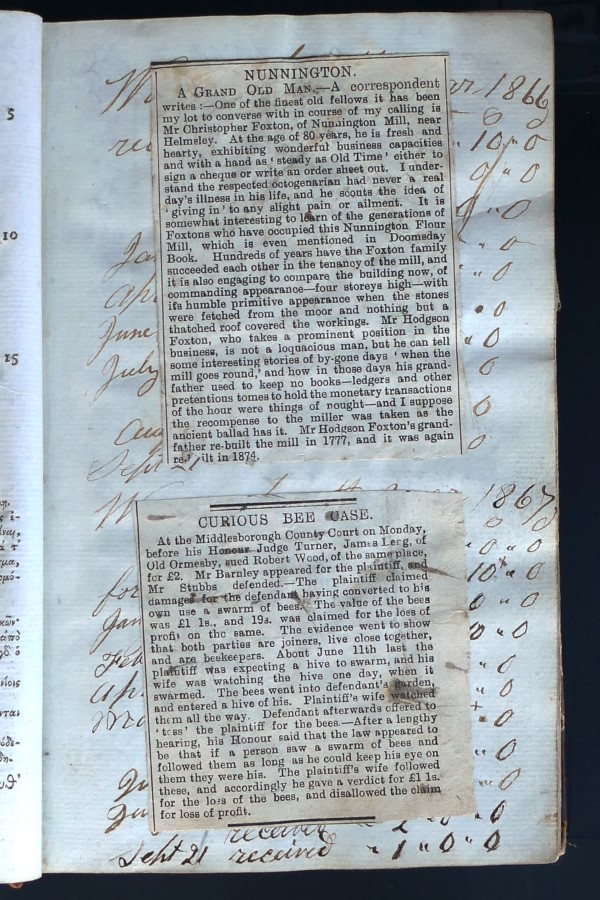 5
10
15
1866
NUNNINGTON.
A GRAND OLD MAN.—A correspondent
writes :—One of the finest old fellows it has been
my lot to converse with in course of my calling is
Mr Christopher Foxton, of Nunnington Mill, near
Helmsley. At the age of 80 years, he is fresh and
hearty, exhibiting wonderful business capacities
and with a hand as ' steady as Old Time ' either to
sign a cheque or write an order sheet out. I under-
stand the respected octogenarian had never a real
day's illness in his life, and he scouts the idea of
' giving in ' to any slight pain or ailment. It is
somewhat interesting to learn of the generations of
Foxtons who have occupied this Nunnington Flour
Mill, which is even mentioned in Doomsday
Book. Hundreds of years have the Foxton family
succeeded each other in the tenancy of the mill, and
it is also engaging to compare the building now, of
commanding appearance—four storeys high—with
its humble primitive appearance when the stones
were fetched from the moor and nothing but a
thatched roof covered the workings. Mr Hodgson
Foxton, who takes a prominent position in the
business, is not a loquacious man, but he can tell
some interesting stories of by-gone days ' when the
mill goes round,' and how in those days his grand-
father used to keep no books—ledgers and other
pretentious tomes to hold the monetary transactions
of the hour were things of nought—and I suppose
the recompense to the miller was taken as the
ancient ballad has it. Mr Hodgson Foxton's grand-
father re-built the mill in 1777, and it was again
re-built in 1874.
June
July
Sept 21
1867
CURIOUS BEE CASE.
At the Middlesborough County Court on Monday,
before his Honour Judge Turner, James Leng, of
Old Ormesby, sued Robert Wood, of the same place,
for £2. Mr Barnley appeared for the plaintiff, and
Mr Stubbs defended.—The plaintiff claimed
damages for the defendant having converted to his
own use a swarm of bees. The value of the bees
was £1 1s., and 19s. was claimed for the loss of
profit on the same. The evidence went to show
that both parties are joiners, live close together,
and are beekeepers. About June 11th last the
plaintiff was expecting a hive to swarm, and his
wife was watching the hive one day, when it
swarmed. The bees went into defendant's garden,
and entered a hive of his. Plaintiff's wife watched
them all the way. Defendant afterwards offered to
' toss ' the plaintiff for the bees.—After a lengthy
hearing, his Honour said that the law appeared to
be that if a person saw a swarm of bees and
followed them as long as he could keep his eye on
them they were his. The plaintiff's wife followed
these, and accordingly he gave a verdict for £1 1s.
for the loss of the bees, and disallowed the claim
for loss of profit.
received 2 " 0 " 0
Sept 21 received " 1 " 0 " 0